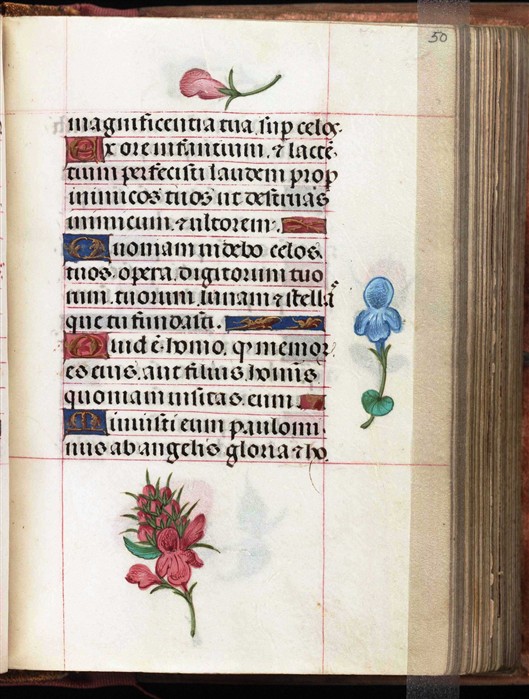 50
magnificentia tua, sup celos.
Ex ore infantium, & lactē
tium perfecisti laudem prop̄
inimicos tuos ut destruas
inimicum, & ultorem.
Quoniam videbo celos
tuos, opera digitorum tuo
rum, tuorum, lunam & stellaˢ
que tu fundasti.
Quid ē homo, qͥ memor
es eius, aut filius hominˢ
quoniam visitas eum.
Minuisti eum paulomi
nus ab angelis gloria & ho